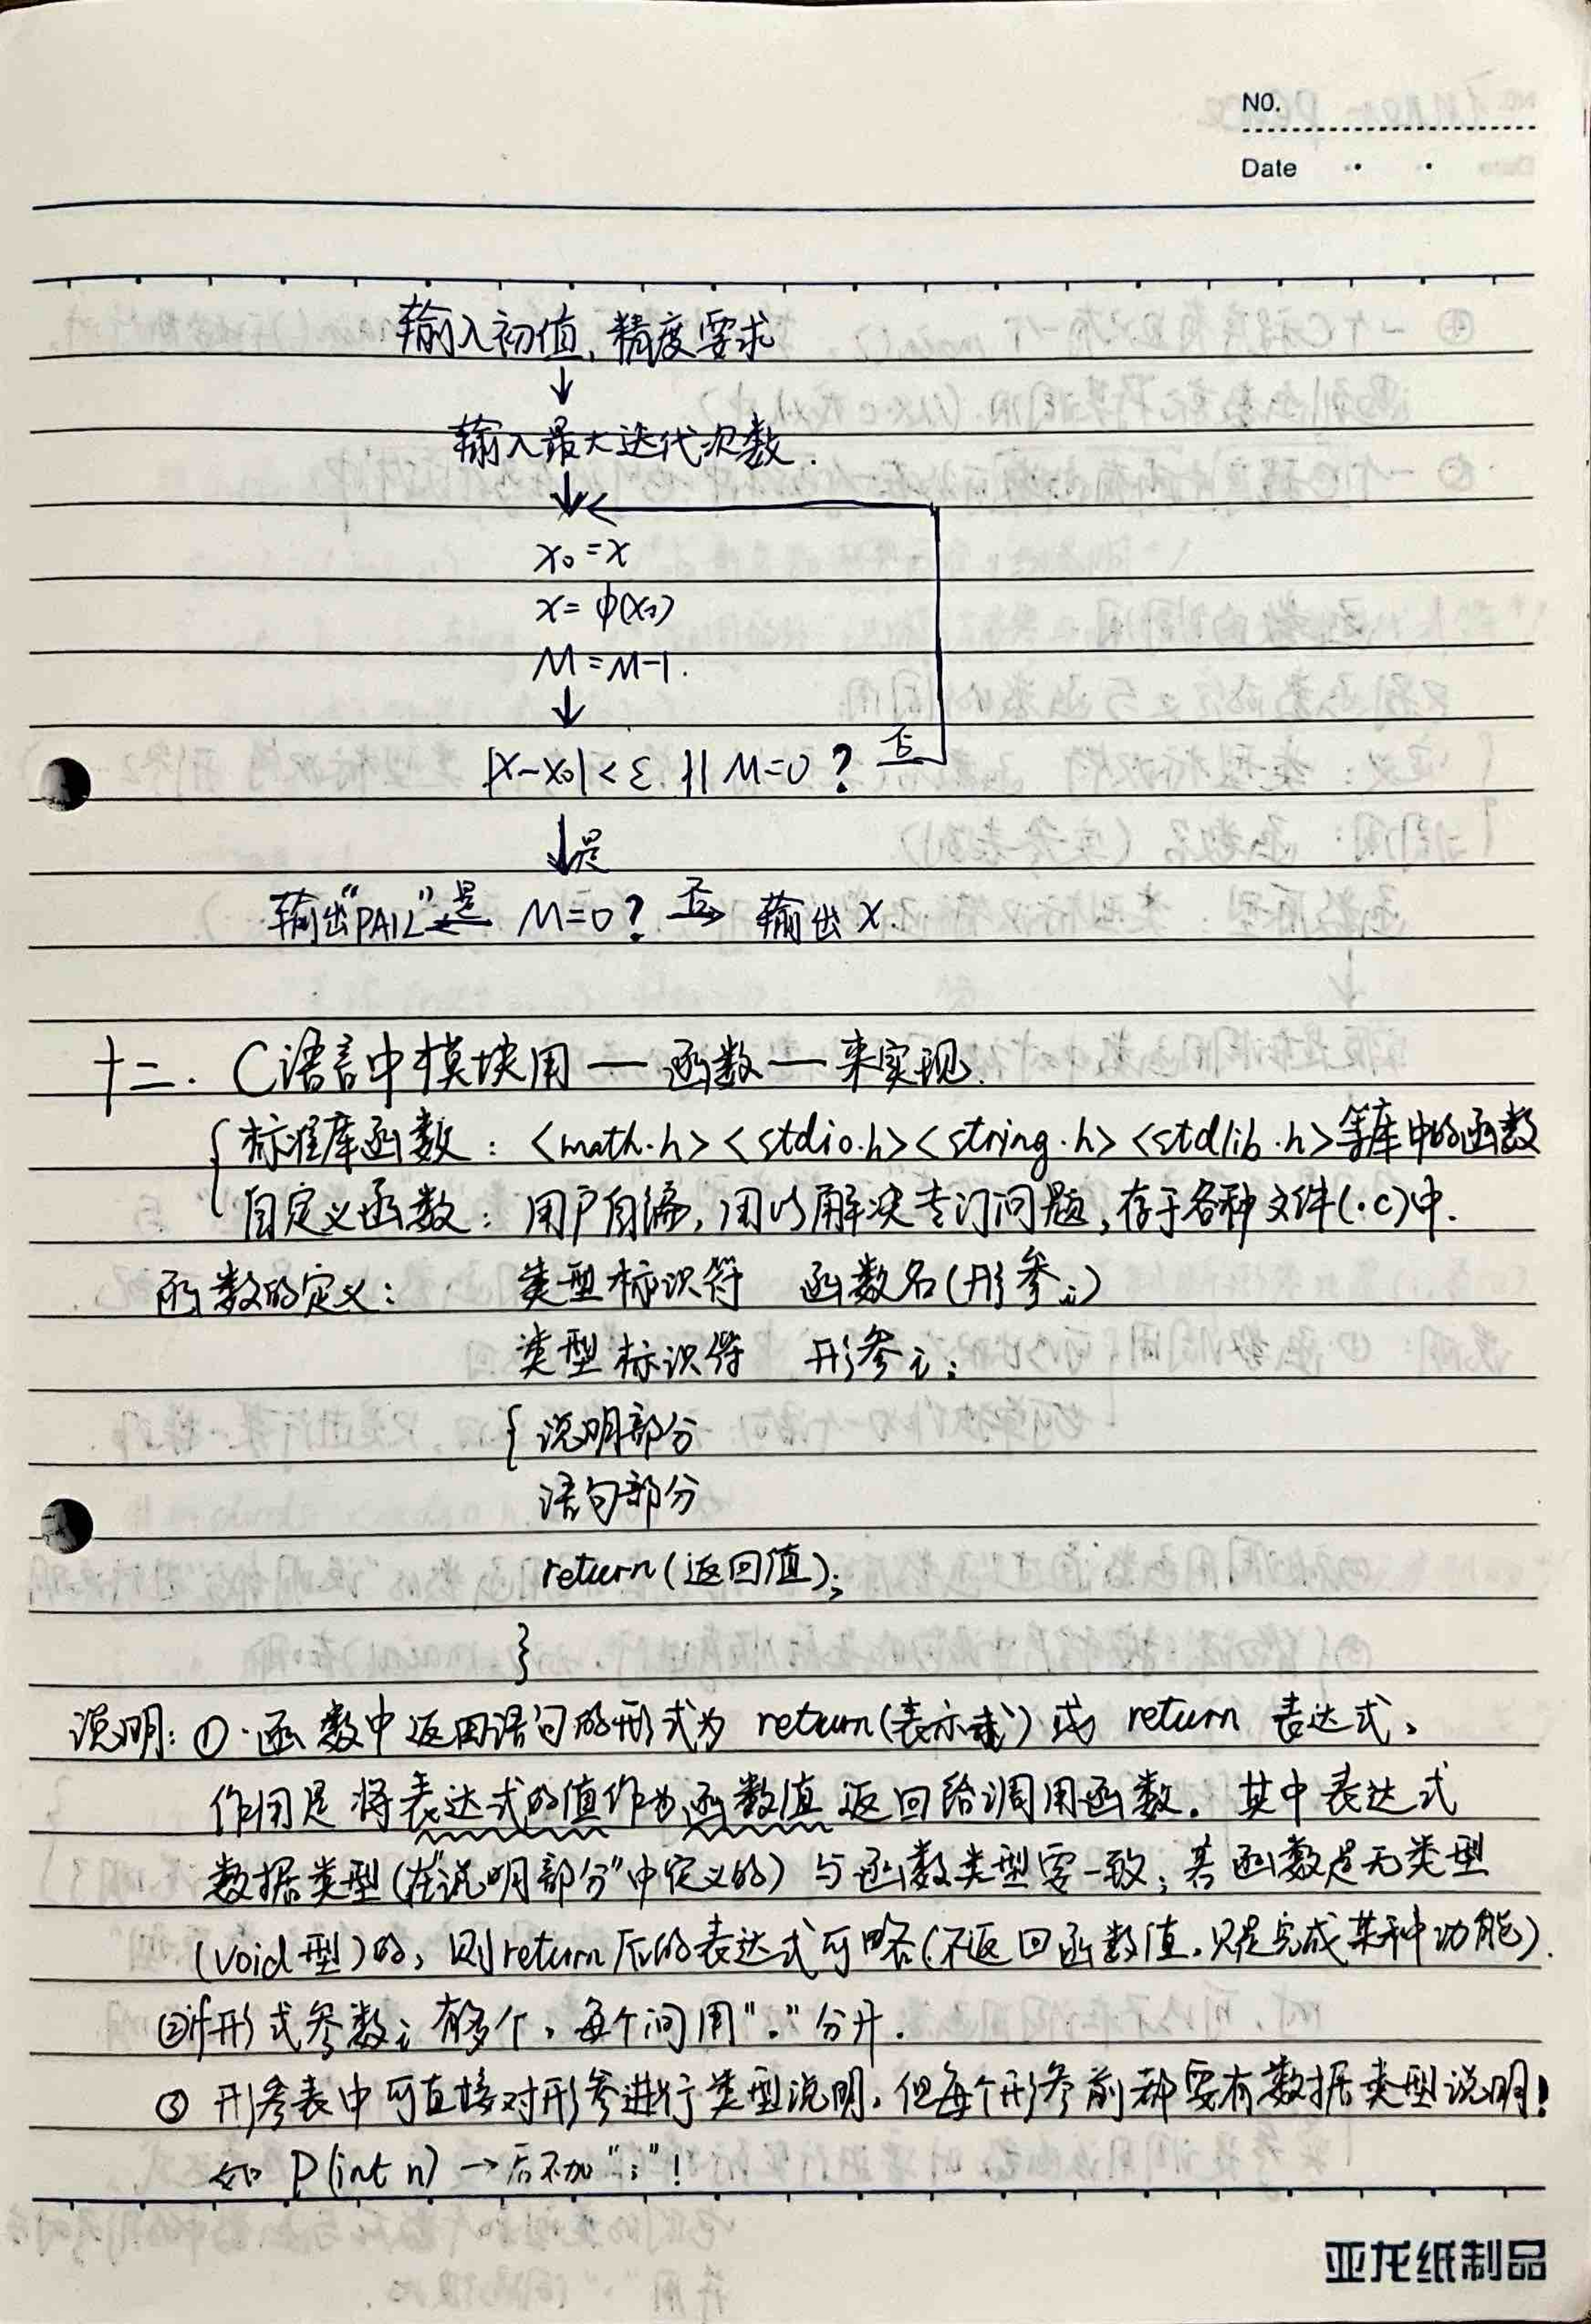 NO.
Date
输入初值,精度要求
↓
输入最大迭代次数.
↓
x₀=x
x=φ(x₀)
M=M-1.
↓
|x-x₀|<ε || M=0? 否
↓是
输出"FAIL" 是← M=0? 否→ 输出x.
十二. C语言中模块用—函数—来实现.
标准库函数: <math.h><stdio.h><string.h><stdlib.h>等库中的函数
自定义函数: 用户自编,用以解决专门问题,存于各种文件(.c)中.
函数的定义: 类型标识符 函数名(形参i)
类型标识符 形参i;
{说明部分
语句部分
return(返回值);
}
说明:①.函数中返回语句的形式为 return(表示式)或 return 表达式,
作用是将表达式的值作为函数值返回给调用函数。其中表达式
数据类型(在"说明部分"中定义的)与函数类型要一致,若函数是无类型
(void型)的,则return后的表达式可略(不返回函数值,只是完成某种功能).
②if形式参数i有多个,每个间用","分开.
③形参表中可直接对形参进行类型说明,但每个形参前都要有数据类型说明!
如 P(int n)→后不加";"!
亚龙纸制品